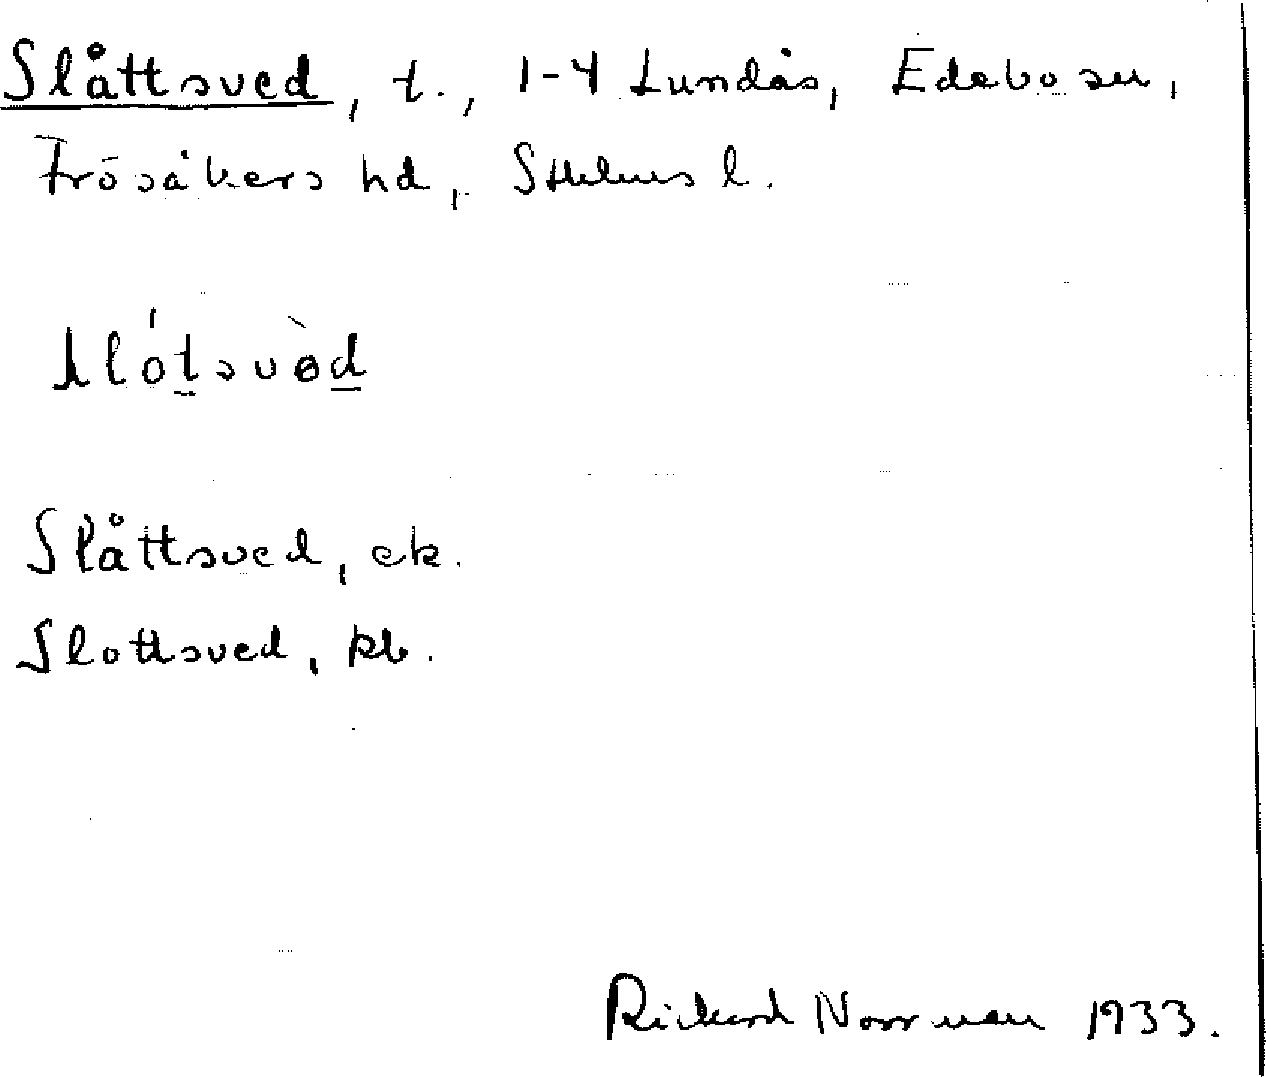 Slåttsved, t., 1-4 Lundås, Edebo sn,
Frösåkers hd, Sthlms l.
Slåttsved, ek.
Slottsved, kb.
Rickard Norrman 1933.